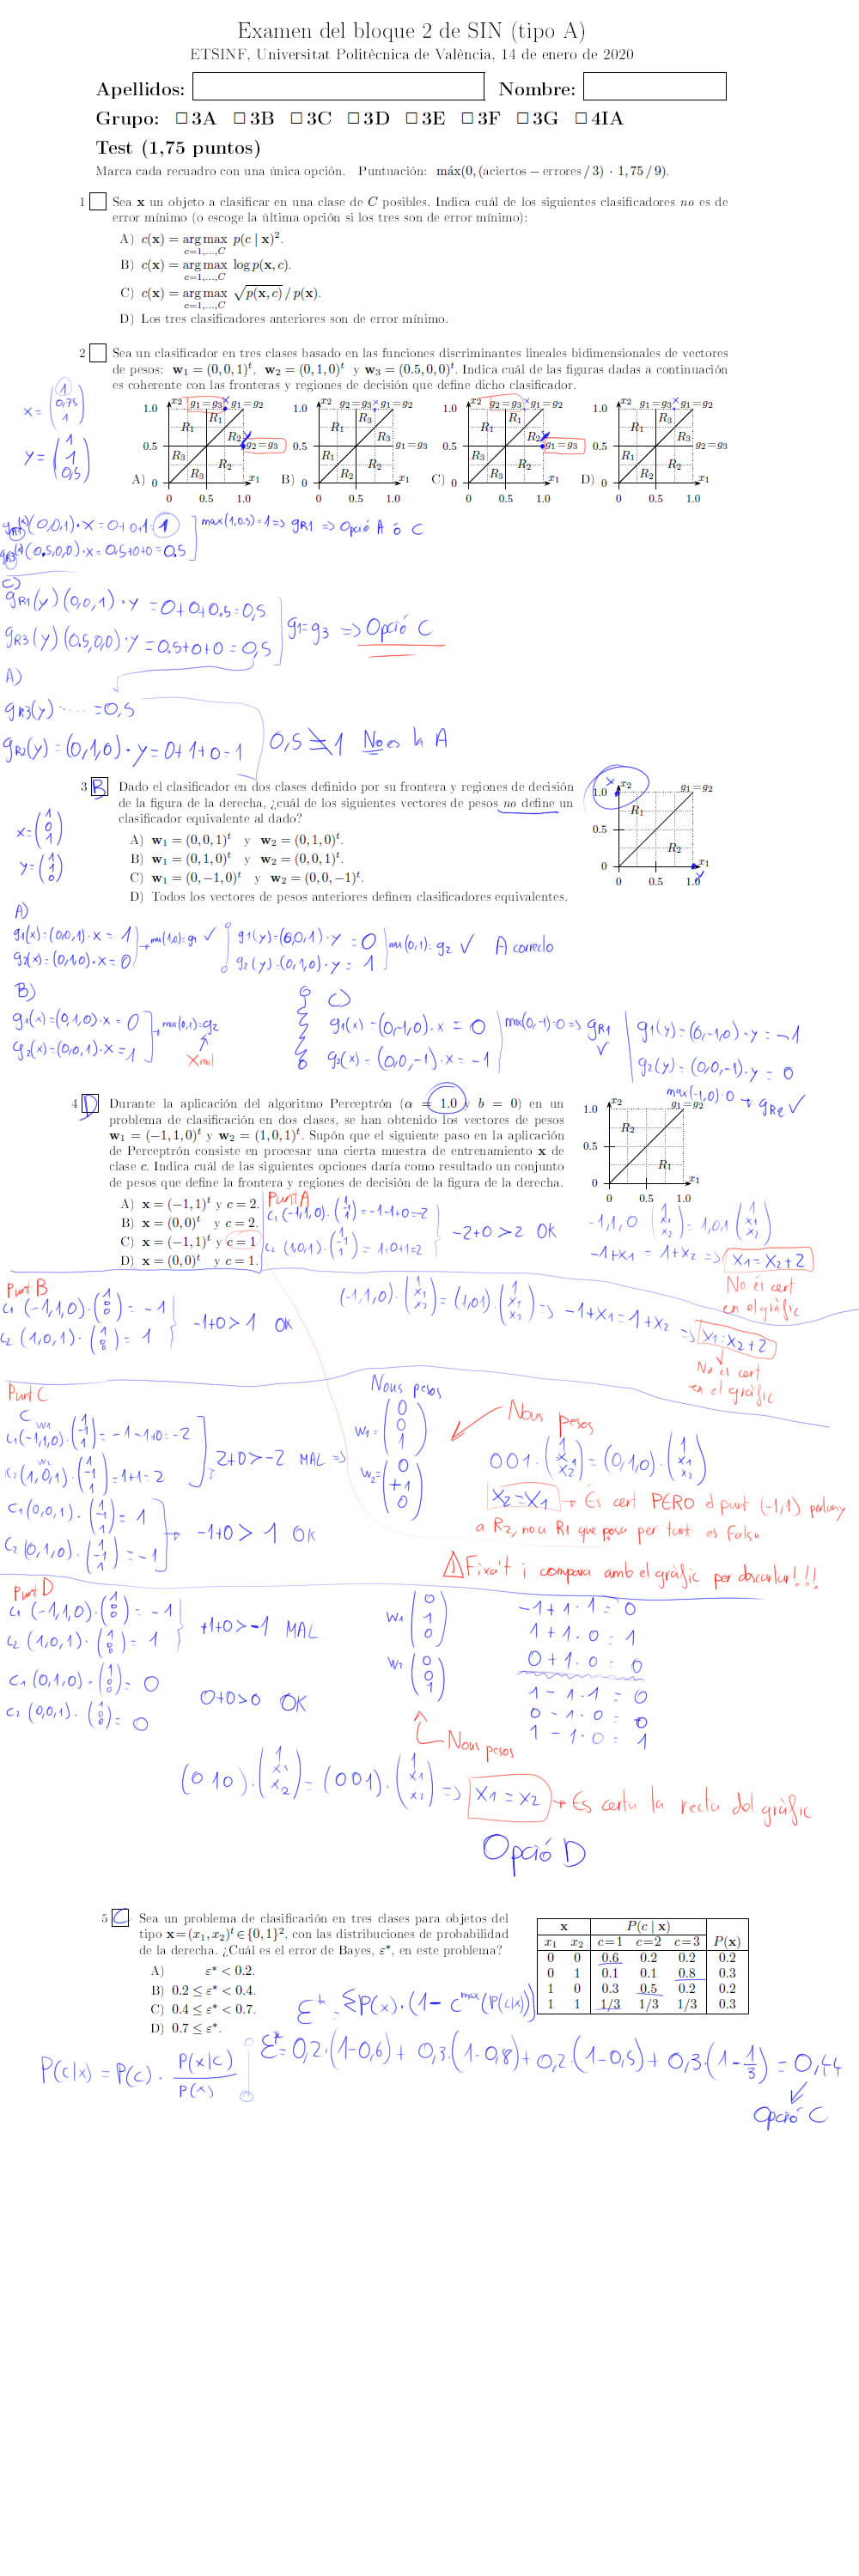 Examen del bloque 2 de SIN (tipo A)
ETSINF, Universitat Politècnica de València, 14 de enero de 2020
Apellidos: Nombre:
Grupo: □ 3A □ 3B □ 3C □ 3D □ 3E □ 3F □ 3G □ 4IA
Test (1,75 puntos)
Marca cada recuadro con una única opción. Puntuación: máx(0, (aciertos − errores / 3) · 1,75 / 9).
1 □ Sea x un objeto a clasificar en una clase de C posibles. Indica cuál de los siguientes clasificadores no es de
error mínimo (o escoge la última opción si los tres son de error mínimo):
A) c(x) = arg max p(c | x)².
c=1,...,C
B) c(x) = arg max log p(x, c).
c=1,...,C
C) c(x) = arg max √p(x, c) / p(x).
c=1,...,C
D) Los tres clasificadores anteriores son de error mínimo.
2 □ Sea un clasificador en tres clases basado en las funciones discriminantes lineales bidimensionales de vectores
de pesos: w₁ = (0, 0, 1)ᵗ, w₂ = (0, 1, 0)ᵗ y w₃ = (0.5, 0, 0)ᵗ. Indica cuál de las figuras dadas a continuación
es coherente con las fronteras y regiones de decisión que define dicho clasificador.
x = (1 0,75 1)
y = (1 1 0,5)
A) 1.0 0.5 0 0 0.5 1.0 x2 g1=g3 x g1=g2 R1 R1 R2 y g2=g3 R3 R2 R3 x1
B) 1.0 0.5 0 0 0.5 1.0 x2 g2=g3 x g1=g2 R3 R1 R3 g1=g3 R1 R2 R2 x1
C) 1.0 0.5 0 0 0.5 1.0 x2 g2=g3 x g1=g2 R1 R1 R2 y g1=g3 R3 R2 R3 x1
D) 1.0 0.5 0 0 0.5 1.0 x2 g1=g3 x g1=g2 R3 R1 R3 g2=g3 R1 R2 R2 x1
gR1(x)(0,0,1)·x = 0+0+1 = 1 max(1,0.5)=1 => gR1 => Opció A ó C
gR3(x)(0.5,0,0)·x = 0.5+0+0 = 0.5
C)
gR1(y)(0,0,1)·y = 0+0+0.5 = 0,5
gR3(y)(0.5,0,0)·y = 0.5+0+0 = 0,5 g1=g3 => Opció C
A)
gR3(y) ····· = 0,5
gR2(y) = (0,1,0)·y = 0+1+0 = 1 0,5 ≠ 1 No es la A
3 B Dado el clasificador en dos clases definido por su frontera y regiones de decisión
de la figura de la derecha, ¿cuál de los siguientes vectores de pesos no define un
clasificador equivalente al dado?
A) w₁ = (0, 0, 1)ᵗ y w₂ = (0, 1, 0)ᵗ.
B) w₁ = (0, 1, 0)ᵗ y w₂ = (0, 0, 1)ᵗ.
C) w₁ = (0, −1, 0)ᵗ y w₂ = (0, 0, −1)ᵗ.
D) Todos los vectores de pesos anteriores definen clasificadores equivalentes.
x 1.0 0.5 0 0 0.5 1.0 x2 g1=g2 R1 R2 x1 y
x = (1 0 1)
y = (1 1 0)
A)
g1(x) = (0,0,1)·x = 1 → max(1,0)=g1 ✓ g1(y) = (0,0,1)·y = 0 max(0,1)=g2 ✓ A correcto
g2(x) = (0,1,0)·x = 0 g2(y) = (0,1,0)·y = 1
B)
g1(x) = (0,1,0)·x = 0 → max(0,1)=g2
g2(x) = (0,0,1)·x = 1 X mal
C)
g1(x) = (0,-1,0)·x = 0 max(0,-1)=0 => gR1 ✓ g1(y) = (0,-1,0)·y = -1
g2(x) = (0,0,-1)·x = -1 g2(y) = (0,0,-1)·y = 0
max(-1,0)=0 → gR2 ✓
4 D Durante la aplicación del algoritmo Perceptrón (α = 1.0 y b = 0) en un
problema de clasificación en dos clases, se han obtenido los vectores de pesos
w₁ = (−1, 1, 0)ᵗ y w₂ = (1, 0, 1)ᵗ. Supón que el siguiente paso en la aplicación
de Perceptrón consiste en procesar una cierta muestra de entrenamiento x de
clase c. Indica cuál de las siguientes opciones daría como resultado un conjunto
de pesos que define la frontera y regiones de decisión de la figura de la derecha.
A) x = (−1, 1)ᵗ y c = 2.
B) x = (0, 0)ᵗ y c = 2.
C) x = (−1, 1)ᵗ y c = 1
D) x = (0, 0)ᵗ y c = 1.
1.0 0.5 0 0 0.5 1.0 x2 g1=g2 R2 R1 x1
Punt A
C1 (-1,1,0)·(1 -1 1) = -1-1+0 = -2
C2 (1,0,1)·(1 -1 1) = 1+0+1 = 2 -2+0 > 2 OK
-1,1,0 (1 x1 x2) = 1,0,1 (1 x1 x2)
-1+x1 = 1+x2 => x1 = x2+2
No és cert
en el gràfic
Punt B
C1 (-1,1,0)·(1 0 0) = -1
C2 (1,0,1)·(1 0 0) = 1 -1+0 > 1 OK
(-1,1,0)·(1 x1 x2) = (1,0,1)·(1 x1 x2) => -1+x1 = 1+x2 => x1 = x2+2
No és cert
en el gràfic
Punt C
C w1
C1 (-1,1,0)·(1 -1 1) = -1-1+0 = -2
C2 w2 (1,0,1)·(1 -1 1) = 1+1 = 2 2+0 > -2 MAL =>
Nous pesos
w1 = (0 0 1)
w2 = (0 +1 0)
C1 (0,0,1)·(1 -1 1) = 1
C2 (0,1,0)·(1 -1 1) = -1 → -1+0 > 1 OK
Nous pesos
0 0 1·(1 x1 x2) = (0,1,0)·(1 x1 x2)
x2 = x1 → És cert PERO el punt (-1,1) pertany
a R2, no a R1 que posa per tant es Falsa
⚠ Fixa't i compara amb el gràfic per descartar!!!
Punt D
C1 (-1,1,0)·(1 0 0) = -1
C2 (1,0,1)·(1 0 0) = 1 +1+0 > -1 MAL
C1 (0,1,0)·(1 0 0) = 0
C2 (0,0,1)·(1 0 0) = 0 0+0 > 0 OK
w1 (0 1 0)
w2 (0 0 1)
Nous pesos
-1+1·1 = 0
1+1·0 = 1
0+1·0 = 0
1-1·1 = 0
0-1·0 = 0
1-1·0 = 1
(0 1 0)·(1 x1 x2) = (0 0 1)·(1 x1 x2) => x1 = x2 → Es certa la recta del gràfic
Opció D
5 C Sea un problema de clasificación en tres clases para objetos del
tipo x = (x₁, x₂)ᵗ ∈ {0, 1}², con las distribuciones de probabilidad
de la derecha. ¿Cuál es el error de Bayes, ε*, en este problema?
A) ε* < 0.2.
B) 0.2 ≤ ε* < 0.4.
C) 0.4 ≤ ε* < 0.7.
D) 0.7 ≤ ε*.
x P(c | x)
x₁ x₂ c=1 c=2 c=3 P(x)
0 0 0.6 0.2 0.2 0.2
0 1 0.1 0.1 0.8 0.3
1 0 0.3 0.5 0.2 0.2
1 1 1/3 1/3 1/3 0.3
ε* = ΣP(x)·(1- c max (P(c|x)))
P(c|x) = P(c)· P(x|c) / P(x)
ε* = 0,2·(1-0,6) + 0,3·(1-0,8) + 0,2·(1-0,5) + 0,3·(1-1/3) = 0,44
Opció C